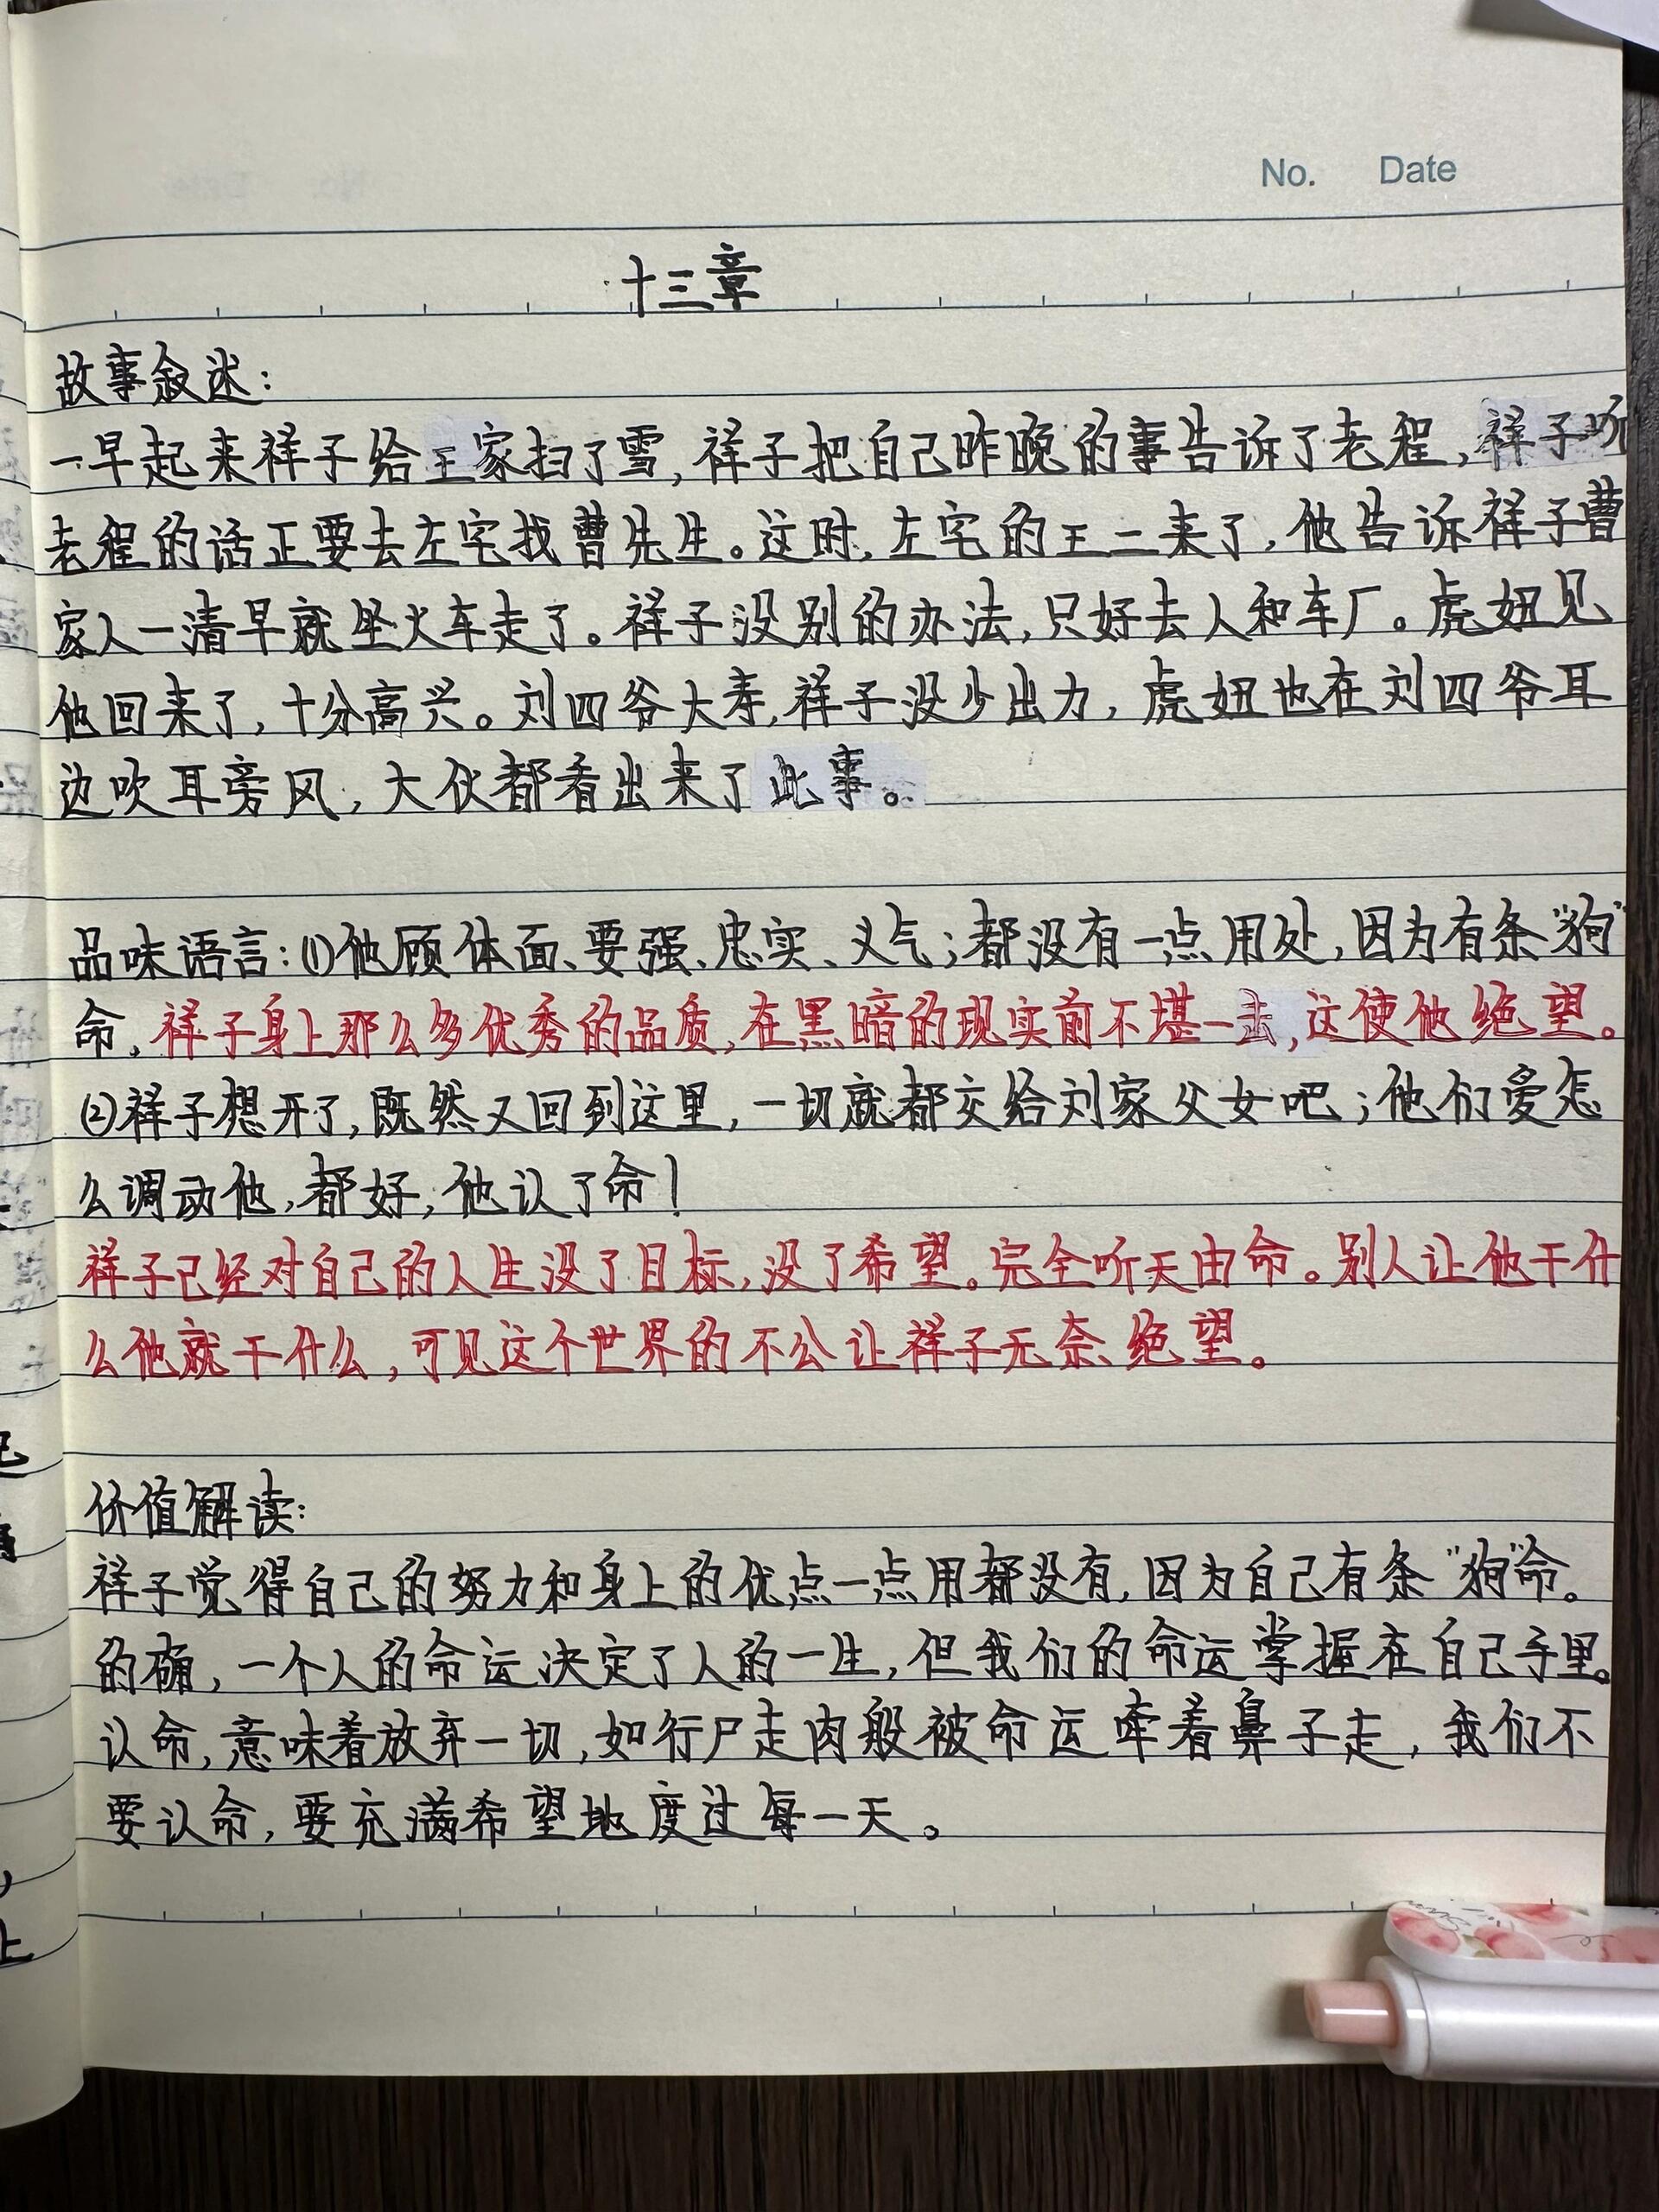 No. Date
十三章
故事叙述:
一早起来祥子给王家扫了雪,祥子把自己昨晚的事告诉了老程,祥子听
老程的话正要去左宅找曹先生。这时,左宅的王二来了,他告诉祥子曹
家人一清早就坐火车走了。祥子没别的办法,只好去人和车厂。虎妞见
他回来了,十分高兴。刘四爷大寿,祥子没少出力,虎妞也在刘四爷耳
边吹耳旁风,大伙都看出来了此事。
品味语言:(1)他顾体面、要强、忠实、义气;都没有一点用处,因为有条“狗”
命,祥子身上那么多优秀的品质,在黑暗的现实前不堪一击,这使他绝望。
(2)祥子想开了,既然又回到这里,一切就都交给刘家父女吧;他们爱怎
么调动他,都好,他认了命!
祥子已经对自己的人生没了目标,没了希望。完全听天由命。别人让他干什
么他就干什么,可见这个世界的不公让祥子无奈、绝望。
价值解读:
祥子觉得自己的努力和身上的优点一点用都没有,因为自己有条“狗”命。
的确,一个人的命运决定了人的一生,但我们的命运掌握在自己手里。
认命,意味着放弃一切,如行尸走肉般被命运牵着鼻子走,我们不
要认命,要充满希望地度过每一天。